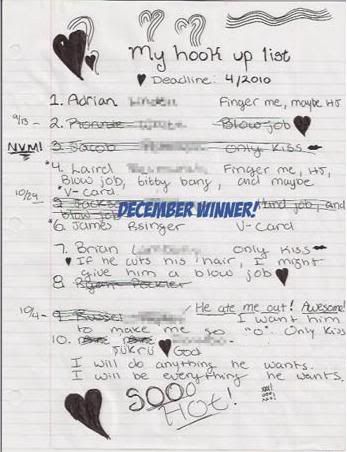 My hook up list
Deadline: 4/2010
1. Adrian Finger me, maybe HJ
9/13 2. Blowjob
NVM! 3. Jacob only Kiss
*4. Laird Finger me, HJ,
blow job, titty bang, and maybe
*V-Card
10/29 5. and
blow job DECEMBER WINNER!
*6. James V-Card
7. Brian only Kiss
If he cuts his hair, I might
give him a blow job
8. Ryan
10/4 9. He ate me out! Awesome!
I want him
to make me go "O". Only Kiss
10.
God
I will do anything he wants.
I will be everything he wants.
SOOO
Hot!